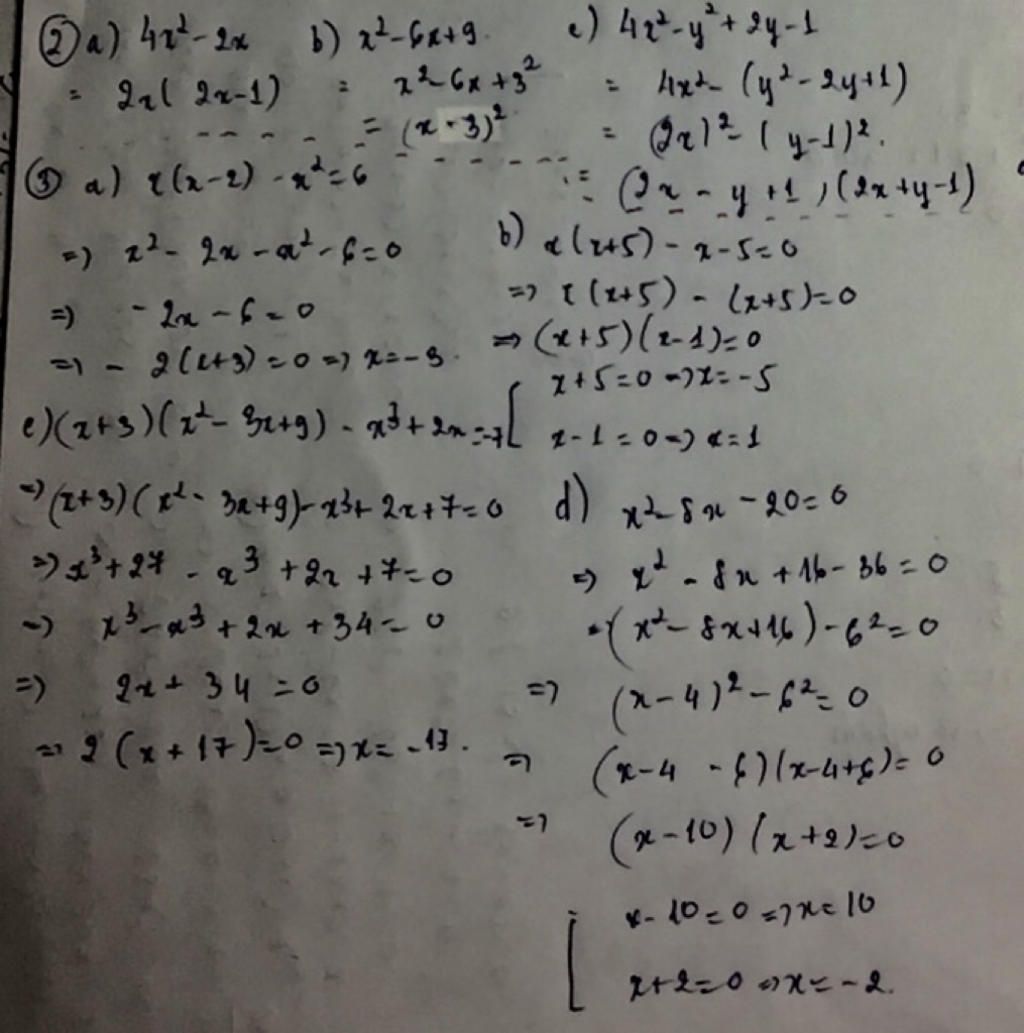 ② a) 4x² - 2x
= 2x( 2x-1)
b) x² - 6x + 9
= x² - 6x + 3²
= (x - 3)²
c) 4x² - y² + 2y - 1
= 4x² - (y² - 2y + 1)
= (2x)² - ( y-1)².
= (2x - y + 1)(2x + y - 1)
③ a) x(x-2) - x² = 6
=) x² - 2x - x² - 6 = 0
=) - 2x - 6 = 0
=) - 2(x+3) = 0 => x = -3.
b) x(x+5) - x - 5 = 0
=> x(x+5) - (x+5) = 0
=> (x+5)(x-1) = 0
[ x + 5 = 0 => x = -5
x - 1 = 0 => x = 1
c) (x+3)(x² - 3x + 9) - x³ + 2x = -7
=> (x+3)(x² - 3x + 9) - x³ + 2x + 7 = 0
=> x³ + 27 - x³ + 2x + 7 = 0
=) x³ - x³ + 2x + 34 = 0
=) 2x + 34 = 0
=> 2(x + 17) = 0 => x = -17.
d) x² - 8x - 20 = 0
=> x² - 8x + 16 - 36 = 0
(x² - 8x + 16) - 6² = 0
=> (x - 4)² - 6² = 0
=> (x - 4 - 6)(x - 4 + 6) = 0
=> (x - 10)(x + 2) = 0
[ x - 10 = 0 => x = 10
x + 2 = 0 => x = -2.